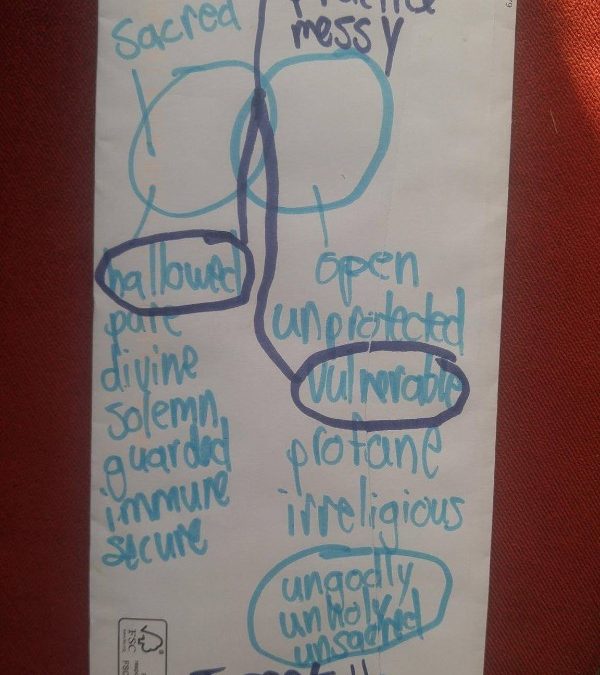 sacred
messy
hallowed
pure
divine
solemn
guarded
immune
secure
open
unprotected
vulnerable
profane
irreligious
ungodly
unholy
unsacred
FSC